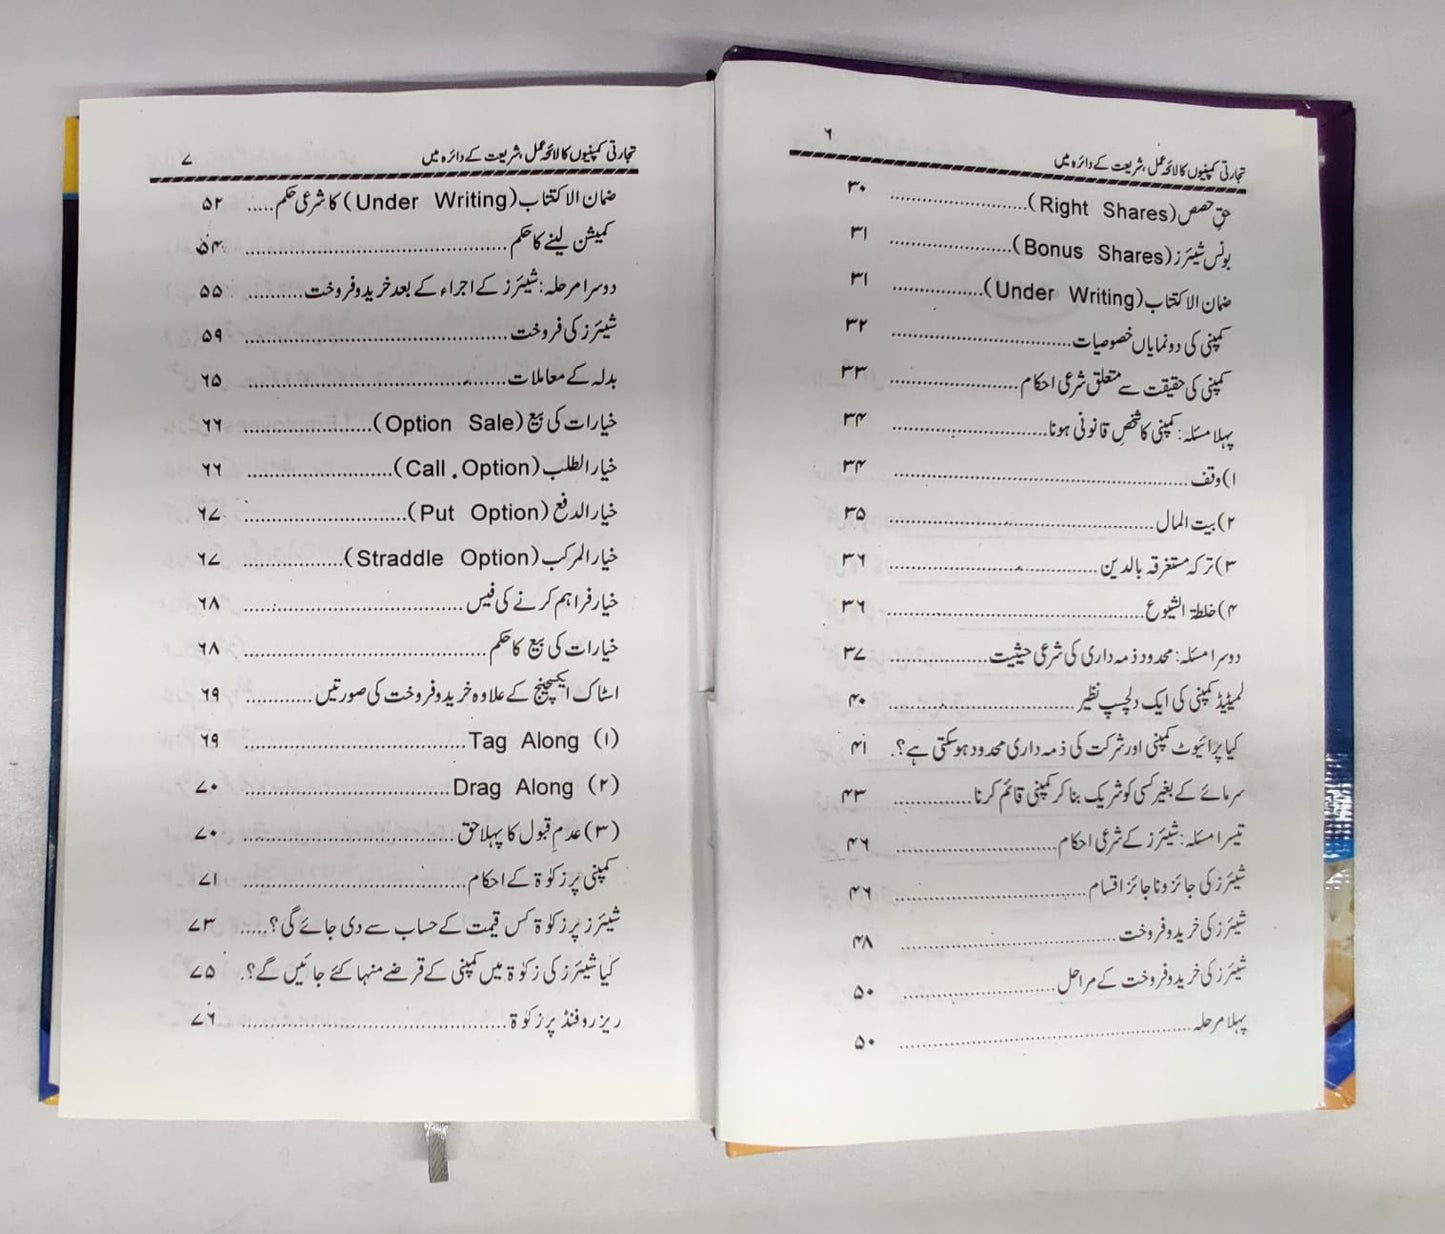 ۶
تجارتی کمپنیوں کا لائحہ عمل، شریعت کے دائرہ میں
حقِ حصص (Right Shares) ........................ ۳۰
بونس شیئرز (Bonus Shares) ..................... ۳۱
ضمان الاکتتاب (Under Writing) ................ ۳۱
کمپنی کی دو نمایاں خصوصیات .............................. ۳۲
کمپنی کی حقیقت سے متعلق شرعی احکام ...................... ۳۳
پہلا مسئلہ: کمپنی کا شخصِ قانونی ہونا .......................... ۳۴
۱) وقف .................................................. ۳۴
۲) بیت المال ............................................. ۳۵
۳) ترکہ مستغرقہ بالدین ................................... ۳۶
۴) خلطۃ الشیوع ........................................... ۳۶
دوسرا مسئلہ: محدود ذمہ داری کی شرعی حیثیت ................. ۳۷
لمیٹیڈ کمپنی کی ایک دلچسپ نظیر ................................ ۴۰
کیا پرائیوٹ کمپنی اور شرکت کی ذمہ داری محدود ہو سکتی ہے؟. ۴۱
سرمائے کے بغیر کسی کو شریک بنا کر کمپنی قائم کرنا ............. ۴۳
تیسرا مسئلہ: شیئرز کے شرعی احکام ........................... ۴۶
شیئرز کی جائز و ناجائز اقسام ................................ ۴۶
شیئرز کی خرید و فروخت .................................... ۴۸
شیئرز کی خرید و فروخت کے مراحل .......................... ۵۰
پہلا مرحلہ ................................................. ۵۰
تجارتی کمپنیوں کا لائحہ عمل، شریعت کے دائرہ میں ۷
ضمان الاکتتاب (Under Writing) کا شرعی حکم ..... ۵۲
کمیشن لینے کا حکم ............................................ ۵۴
دوسرا مرحلہ: شیئرز کے اجراء کے بعد خرید و فروخت .......... ۵۵
شیئرز کی فروخت ............................................ ۵۹
بدلہ کے معاملات ............................................ ۶۵
خیارات کی بیع (Option Sale) ...................... ۶۶
خیار الطلب (Call Option) ......................... ۶۶
خیار الدفع (Put Option) ........................... ۶۷
خیار المرکب (Straddle Option) .................. ۶۷
خیار فراہم کرنے کی فیس ..................................... ۶۸
خیارات کی بیع کا حکم ........................................ ۶۸
اسٹاک ایکسچینج کے علاوہ خرید و فروخت کی صورتیں ............ ۶۹
(۱) Tag Along ..................................... ۶۹
(۲) Drag Along ................................... ۷۰
(۳) عدمِ قبول کا پہلا حق .................................... ۷۰
کمپنی پر زکوٰۃ کے احکام ...................................... ۷۱
شیئرز پر زکوٰۃ کس قیمت کے حساب سے دی جائے گی؟ ..... ۷۳
کیا شیئرز کی زکوٰۃ میں کمپنی کے قرضے منہا کئے جائیں گے؟. ۷۵
ریزرو فنڈ پر زکوٰۃ ............................................ ۷۶